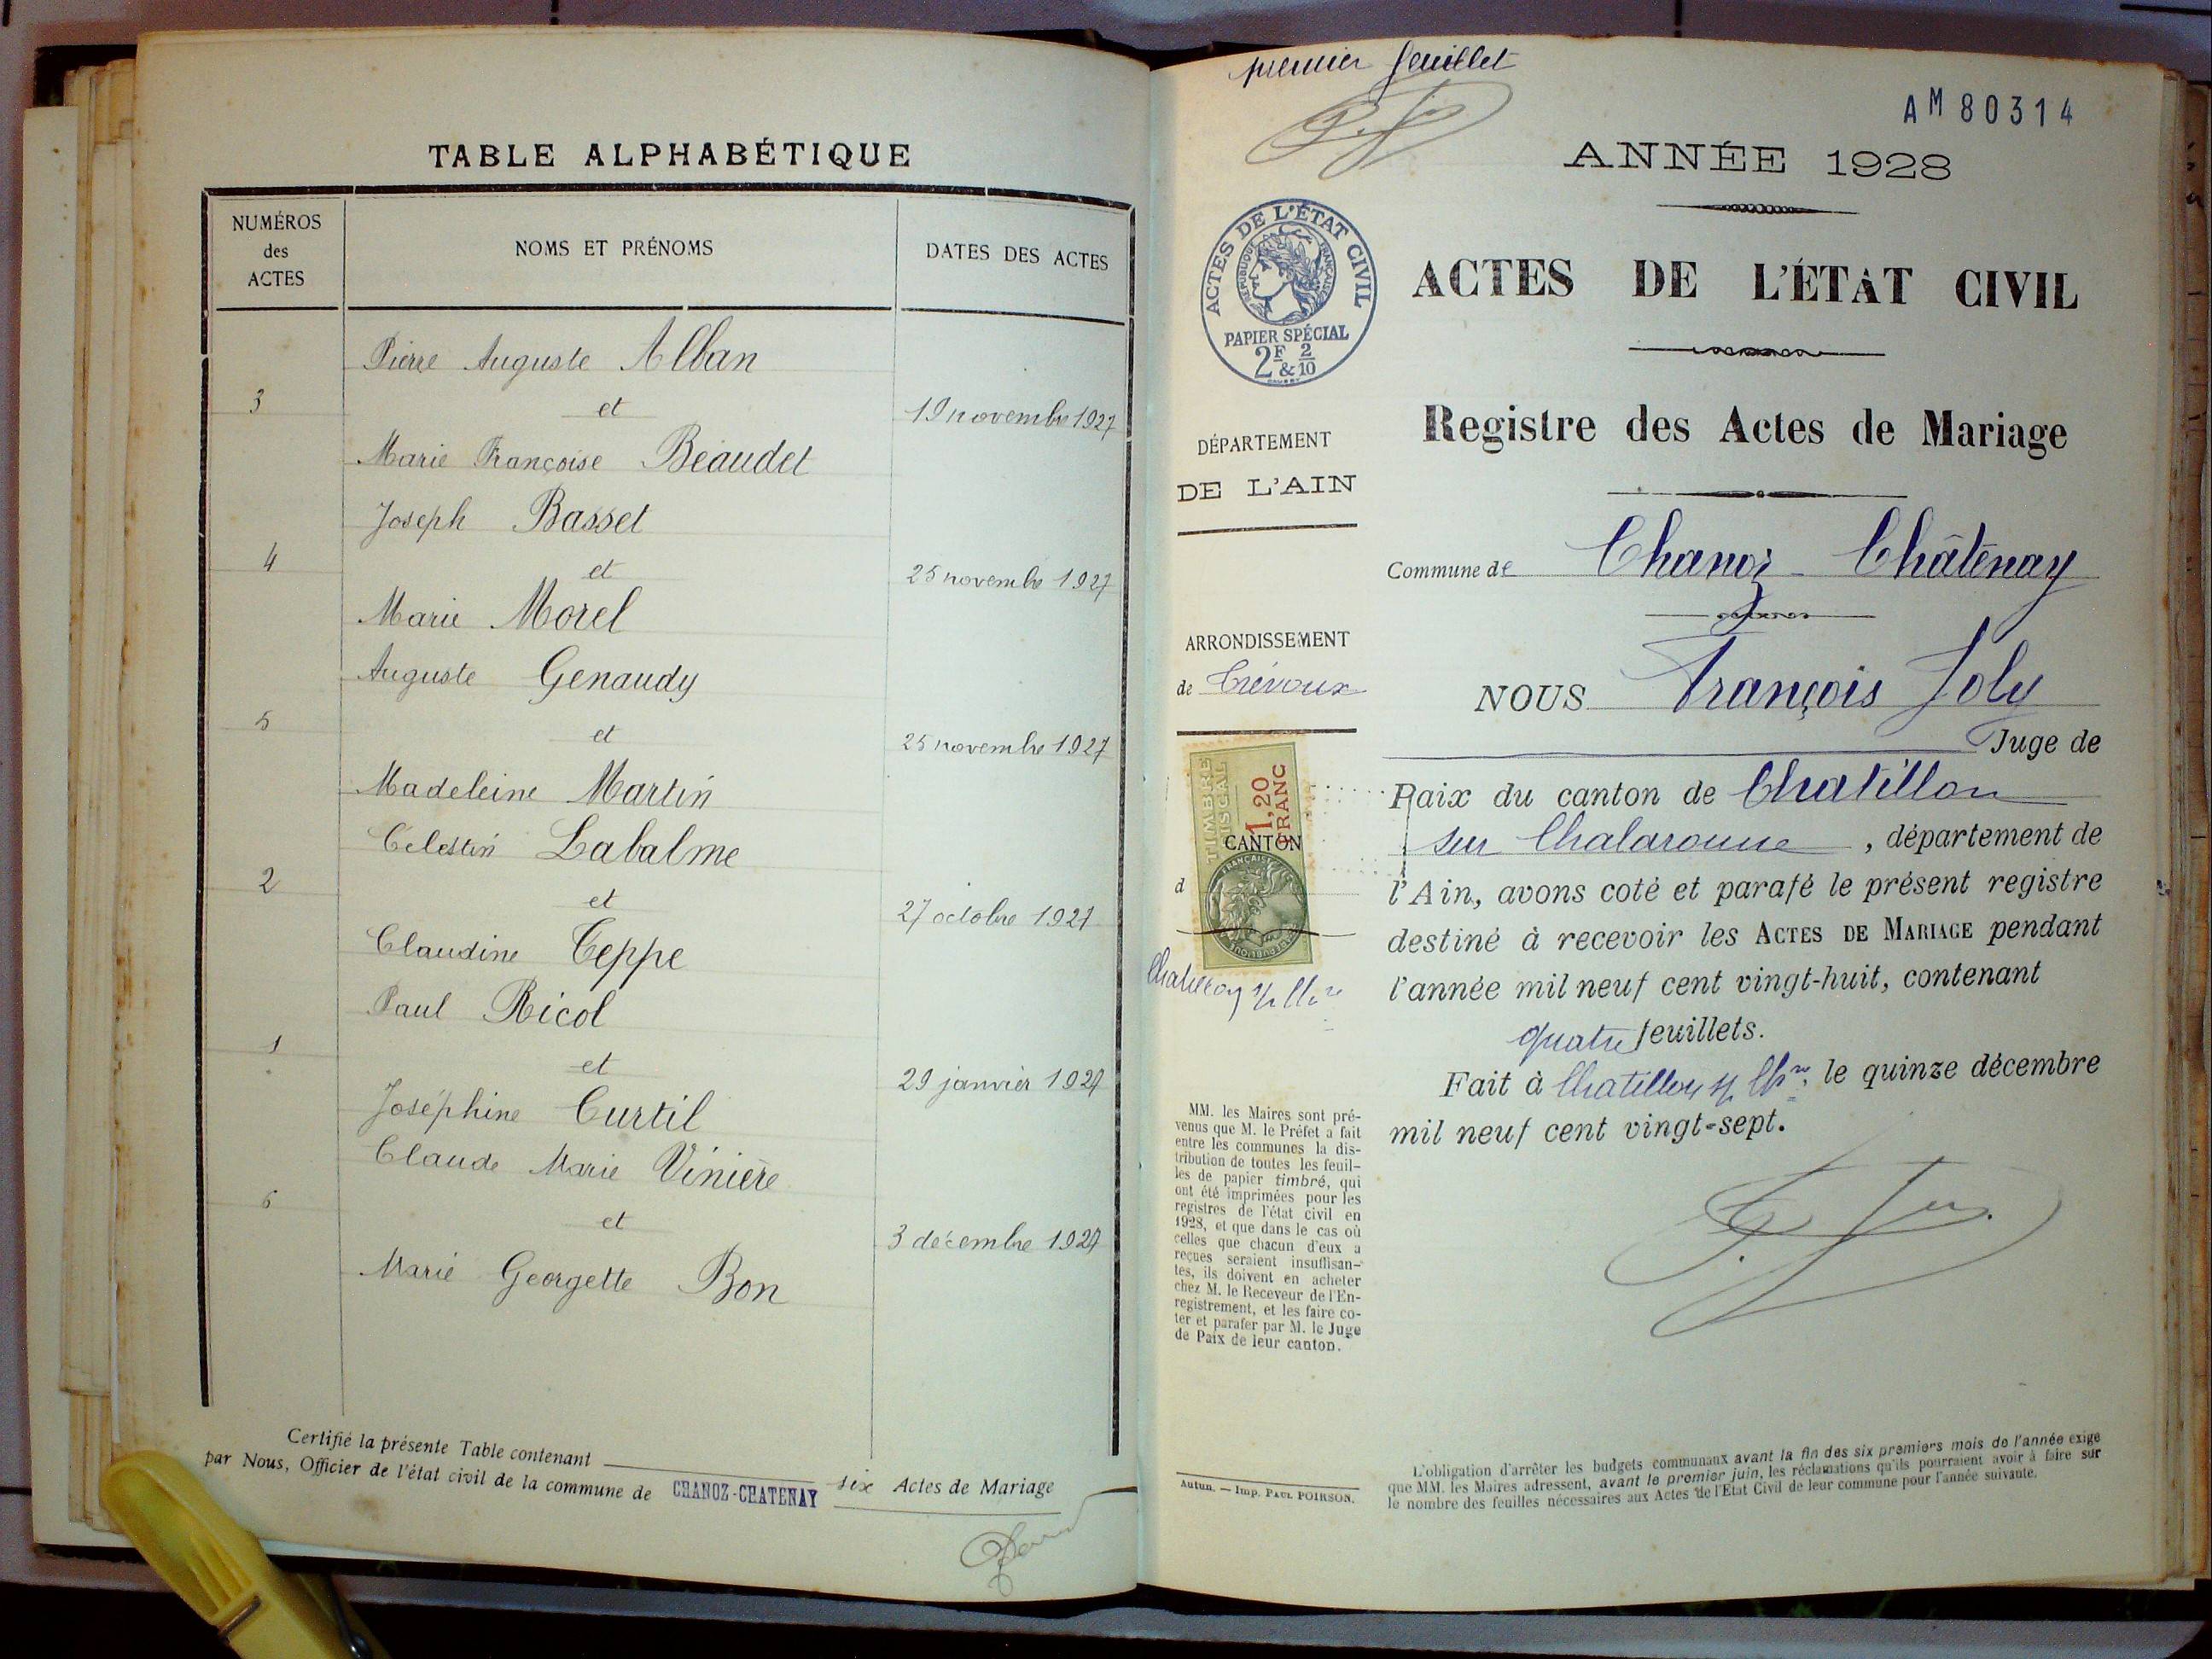 TABLE ALPHABÉTIQUE
NUMÉROS des ACTES
NOMS ET PRÉNOMS
DATES DES ACTES
Pierre Auguste Alban
3 et 19 novembre 1927
Marie Françoise Beaudet
Joseph Basset
4 et 25 novembre 1927
Marie Morel
Auguste Genaudy
5 et 25 novembre 1927
Madeleine Martin
Célestin Labalme
2 et 27 octobre 1927
Claudine Teppe
Paul Ricol
1 et 29 janvier 1927
Joséphine Curtil
Claude Marie Vinière
6 et 3 décembre 1927
Marie Georgette Bon
Certifié la présente Table contenant six Actes de Mariage
par Nous, Officier de l'état civil de la commune de CHANOZ-CHATENAY
premier feuillet
AM 80314
ANNÉE 1928
ACTES DE L'ÉTAT CIVIL
RÉPUBLIQUE FRANÇAISE
PAPIER SPÉCIAL
2F & 2/10
ACTES DE L'ÉTAT CIVIL
Registre des Actes de Mariage
DÉPARTEMENT
DE L'AIN
Commune de Chanoz-Châtenay
ARRONDISSEMENT
de Trévoux
NOUS François Joly
Juge de
Paix du canton de Chatillon
sur Chalaronne, département de
l'Ain, avons coté et parafé le présent registre
destiné à recevoir les ACTES DE MARIAGE pendant
l'année mil neuf cent vingt-huit, contenant
quatre feuillets.
Fait à Chatillon s/ Chne, le quinze décembre
mil neuf cent vingt-sept.
TIMBRE
FISCAL
1,20
FRANC
CANTON
d
Chatillon s/ Chne
MM. les Maires sont pré-
venus que M. le Préfet a fait
entre les communes la dis-
tribution de toutes les feuil-
les de papier timbré, qui
ont été imprimées pour les
registres de l'état civil en
1928, et que dans le cas où
celles que chacun d'eux a
reçues seraient insuffisan-
tes, ils doivent en acheter
chez M. le Receveur de l'En-
registrement, et les faire co-
ter et parafer par M. le Juge
de Paix de leur canton.
Autun. — Imp. PAUL POIRSON.
L'obligation d'arrêter les budgets communaux avant la fin des six premiers mois de l'année exige
que MM. les Maires adressent, avant le premier juin, les réclamations qu'ils pourraient avoir à faire sur
le nombre des feuilles nécessaires aux Actes de l'Etat Civil de leur commune pour l'année suivante.